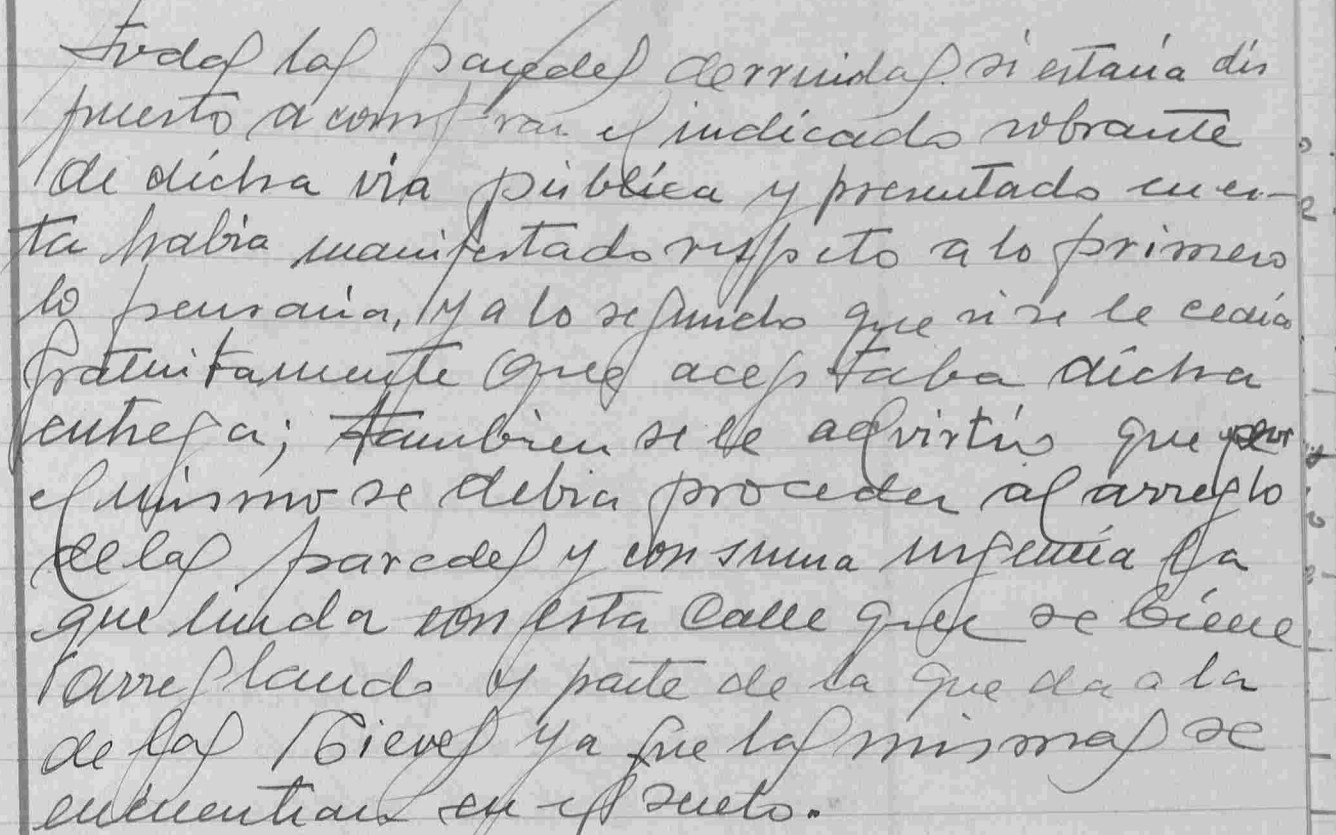 todas las paredes derruidas. si estaria dis
puesto a comprar el indicado sobrante
de dicha via pública y presentado en es-
ta habia manifestado respeto a lo primero
lo pensaria, y a lo segundo que si se le cedia
gratuitamente que aceptaba dicha
entrega; tambien se le advirtio que por
el mismo se debia proceder al arreglo
de las paredes y con suma urgencia la
que linda con esta Calle que se biene
arreglando y parte de la que da a la
de las ya que las mismas se
encuentran en el suelo.